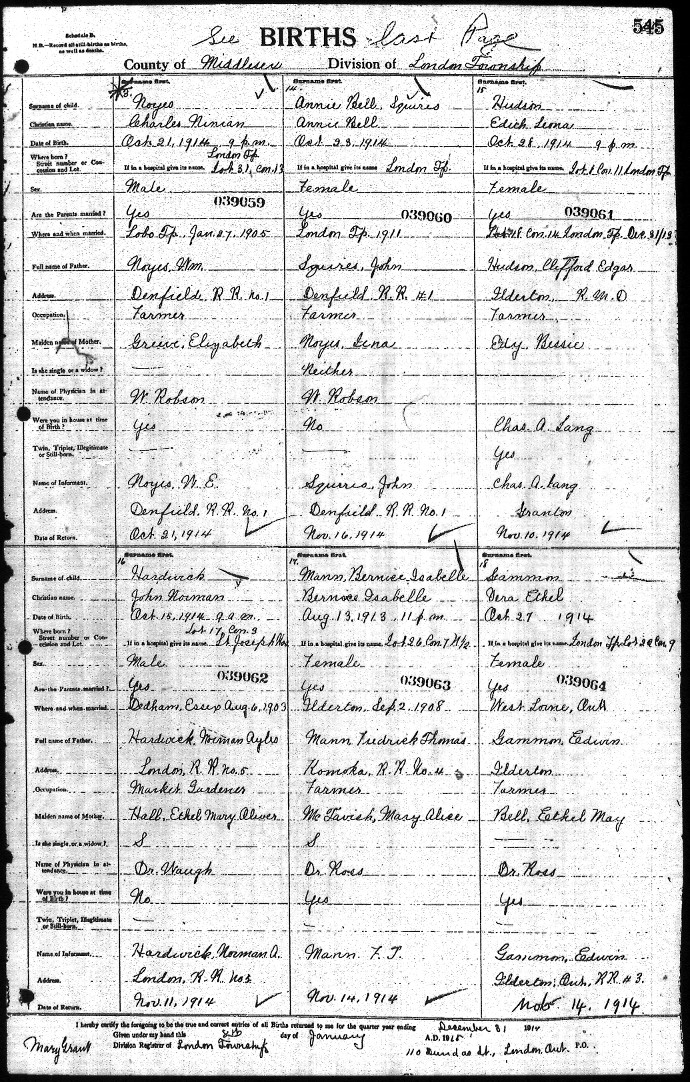 545
Schedule B.
N.B.—Record all still-births as births, as well as deaths.
See BIRTHS last Page
County of Middlesex Division of London Township
Surname first. Surname first. Surname first.
14 15
Surname of child. Noyes Annie Bell, Squires Hudson
Christian name. Charles Ninian Annie Bell Edith Leona
Date of Birth. Oct 21, 1914 9 p.m. Oct 23, 1914 Oct 28, 1914 9 p.m.
London Tp
Where born? Street number or Concession and Lot. Lot 31, Con. 13 If in a hospital give its name London Tp. If in a hospital give its name. Lot 1 Con. 11 London Tp
Sex. Male Female Female
039059 039060 039061
Are the Parents married? Yes Yes Yes
Where and when married. Lobo Tp., Jan. 27, 1905 London Tp. 1911 Con. 14 London Tp. Dec 31/13
Full name of Father. Noyes, Wm. Squires, John Hudson, Clifford Edgar
Address. Denfield, R.R. No. 1 Denfield R.R. #1 Ilderton, R.M.D
Occupation. Farmer Farmer Farmer
Maiden name of Mother. Grieve, Elizabeth Noyes, Lena Edy, Bessie
Is she single or a widow? — Neither
Name of Physician in attendance. W. Robson W. Robson
Were you in house at time of Birth? Yes No Chas. A. Lang
Twin, Triplet, Illegitimate or Still-born. — — Yes
Name of Informant. Noyes, W. E. Squires, John Chas. A. Lang
Address. Denfield, R.R. No. 1 Denfield, R.R. No. 1 Granton
Date of Return. Oct. 21, 1914 Nov. 16, 1914 Nov. 10, 1914
Surname first. Surname first. Surname first.
16 17. 18
Surname of child. Hardwick Mann, Bernice Isabelle Gammon
Christian name. John Norman Bernice Isabelle Vera Ethel
Date of Birth. Oct 15, 1914 9 a.m. Aug. 13, 1913 11 p.m. Oct 27 1914
Lot 17, Con. 3
Where born? Street number or Concession and Lot. If in a hospital give its name. St. Joseph's Hos. If in a hospital give its name. Lot 26 Con. 7 N ½ If in a hospital give its name. London Tp. Lot 20 Con. 9
Sex. Male Female Female
039062 039063 039064
Are the Parents married? Yes Yes Yes
Where and when married. Dedham, Essex Aug. 6, 1903 Ilderton, Sep. 2, 1908 West Lorne, Ont
Full name of Father. Hardwick, Norman Mann Fredrick Thomas Gammon Edwin
Address. London, R.R. No. 5 Komoka, R.R. No. 4 Ilderton
Occupation. Market Gardener Farmer Farmer
Maiden name of Mother. Hall, Ethel Mary Oliver McTavish, Mary Alice Bell, Eethel May
Is she single or a widow? S S —
Name of Physician in attendance. Dr. Waugh Dr. Ross Dr. Ross
Were you in house at time of Birth? No Yes Yes
Twin, Triplet, Illegitimate or Still-born. — —
Name of Informant. Hardwick, Norman A. Mann F. T. Gammon, Edwin
Address. London, R.R. No. 5 Ilderton, Ont, RR #3.
Date of Return. Nov. 11, 1914 Nov. 14, 1914 Nov 14, 1914
I hereby certify the foregoing to be the true and correct entries of all Births returned to me for the quarter year ending December 31 1914
Given under my hand this day of January A.D. 1915
Mary Grant Division Registrar of London Township 110 Dundas St., London Ont. P.O.